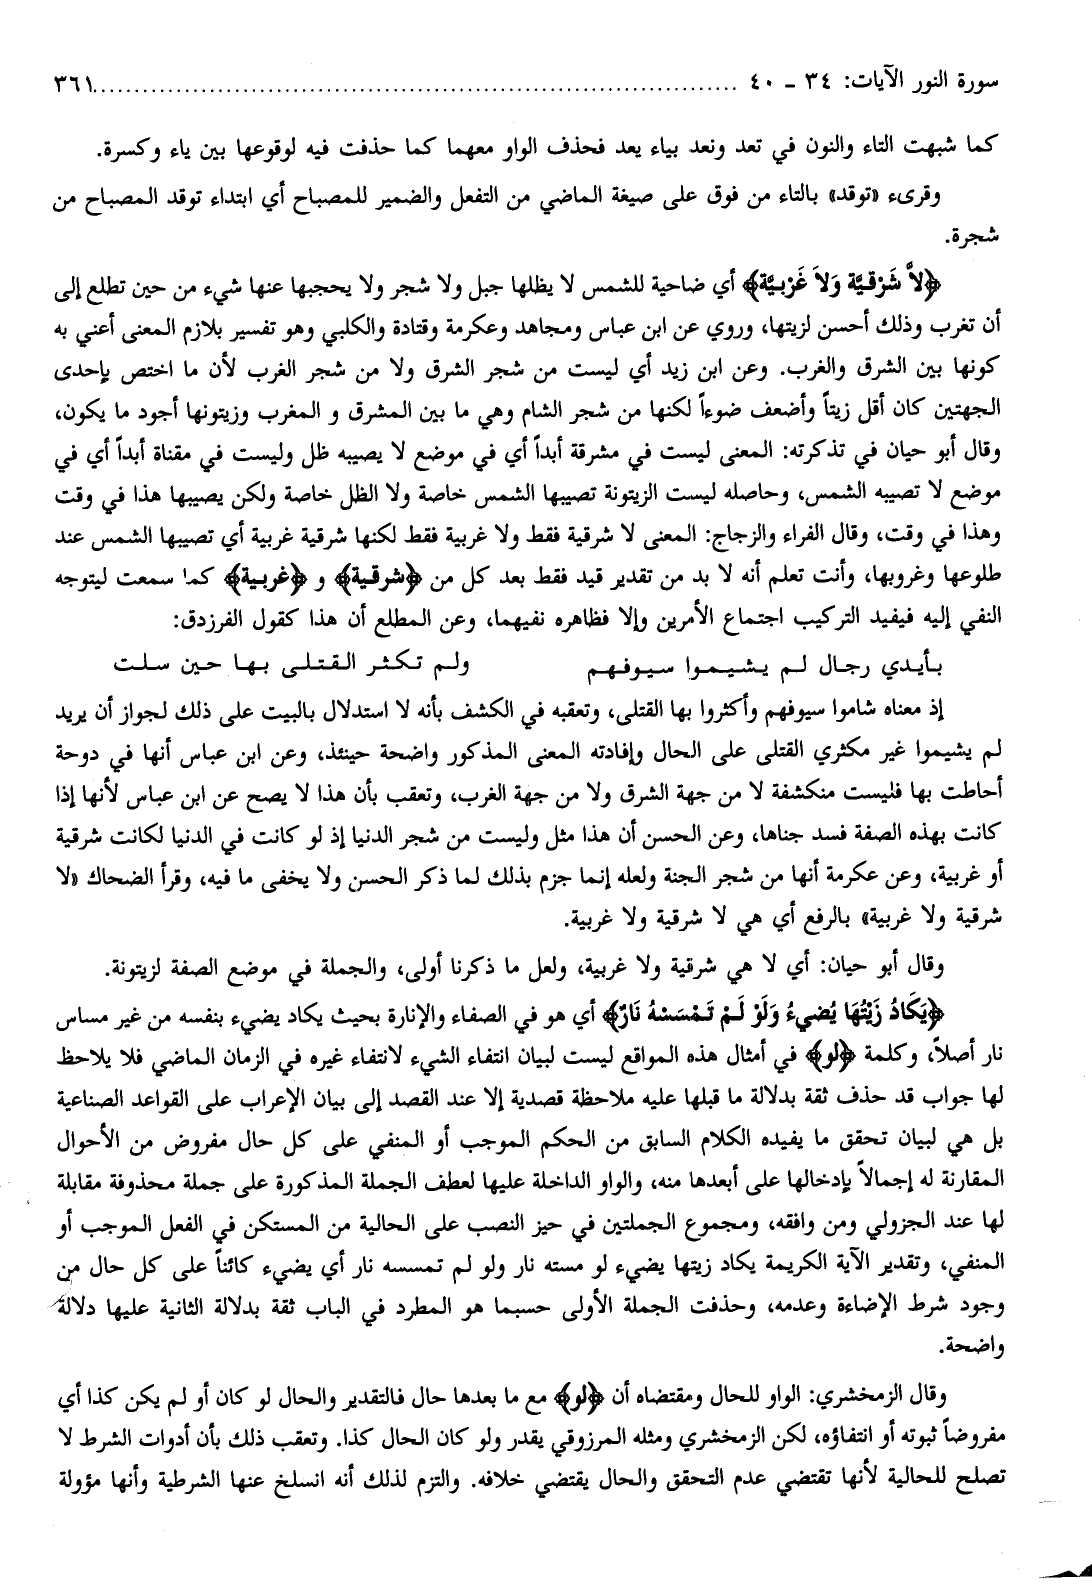 سورة النور الآيات: ٣٤ ـ ٤٠ ........................................................................... ٣٦١
كما شبهت التاء والنون في تعد ونعد بياء يعد فحذف الواو معهما كما حذفت فيه لوقوعها بين ياء وكسرة.
وقرىء «توقد» بالتاء من فوق على صيغة الماضي من التفعل والضمير للمصباح أي ابتداء توقد المصباح من
شجرة.
﴿لاَّ شَرْقيَّة وَلاَ غَرْبيَّة﴾ أي ضاحية للشمس لا يظلها جبل ولا شجر ولا يحجبها عنها شيء من حين تطلع إلى
أن تغرب وذلك أحسن لزيتها، وروي عن ابن عباس ومجاهد وعكرمة وقتادة والكلبي وهو تفسير بلازم المعنى أعني به
كونها بين الشرق والغرب. وعن ابن زيد أي ليست من شجر الشرق ولا من شجر الغرب لأن ما اختص بإحدى
الجهتين كان أقل زيتاً وأضعف ضوءاً لكنها من شجر الشام وهي ما بين المشرق و المغرب وزيتونها أجود ما يكون،
وقال أبو حيان في تذكرته: المعنى ليست في مشرقة أبداً أي في موضع لا يصيبه ظل وليست في مقناة أبداً أي في
موضع لا تصيبه الشمس، وحاصله ليست الزيتونة تصيبها الشمس خاصة ولا الظل خاصة ولكن يصيبها هذا في وقت
وهذا في وقت، وقال الفراء والزجاج: المعنى لا شرقية فقط ولا غربية فقط لكنها شرقية غربية أي تصيبها الشمس عند
طلوعها وغروبها، وأنت تعلم أنه لا بد من تقدير قيد فقط بعد كل من ﴿شرقية﴾ و ﴿غربية﴾ كما سمعت ليتوجه
النفي إليه فيفيد التركيب اجتماع الأمرين وإلا فظاهره نفيهما، وعن المطلع أن هذا كقول الفرزدق:
بأيدي رجال لم يشيموا سيوفهم ولم تكثر القتلى بها حين سلت
إذ معناه شاموا سيوفهم وأكثروا بها القتلى، وتعقبه في الكشف بأنه لا استدلال بالبيت على ذلك لجواز أن يريد
لم يشيموا غير مكثري القتلى على الحال وإفادته المعنى المذكور واضحة حينئذ، وعن ابن عباس أنها في دوحة
أحاطت بها فليست منكشفة لا من جهة الشرق ولا من جهة الغرب، وتعقب بأن هذا لا يصح عن ابن عباس لأنها إذا
كانت بهذه الصفة فسد جناها، وعن الحسن أن هذا مثل وليست من شجر الدنيا إذ لو كانت في الدنيا لكانت شرقية
أو غربية، وعن عكرمة أنها من شجر الجنة ولعله إنما جزم بذلك لما ذكر الحسن ولا يخفى ما فيه، وقرأ الضحاك «لا
شرقية ولا غربية» بالرفع أي هي لا شرقية ولا غربية.
وقال أبو حيان: أي لا هي شرقية ولا غربية، ولعل ما ذكرنا أولى، والجملة في موضع الصفة لزيتونة.
﴿يَكَادُ زَيْتُهَا يُضيءُ وَلَوْ لَـمْ تَـمْسَسْهُ نَارٌ﴾ أي هو في الصفاء والإنارة بحيث يكاد يضيء بنفسه من غير مساس
نار أصلاً، وكلمة ﴿لو﴾ في أمثال هذه المواقع ليست لبيان انتفاء الشيء لانتفاء غيره في الزمان الماضي فلا يلاحظ
لها جواب قد حذف ثقة بدلالة ما قبلها عليه ملاحظة قصدية إلا عند القصد إلى بيان الإعراب على القواعد الصناعية
بل هي لبيان تحقق ما يفيده الكلام السابق من الحكم الموجب أو المنفي على كل حال مفروض من الأحوال
المقارنة له إجمالاً بإدخالها على أبعدها منه، والواو الداخلة عليها لعطف الجملة المذكورة على جملة محذوفة مقابلة
لها عند الجزولي ومن وافقه، ومجموع الجملتين في حيز النصب على الحالية من المستكن في الفعل الموجب أو
المنفي، وتقدير الآية الكريمة يكاد زيتها يضيء لو مسته نار ولو لم تمسسه نار أي يضيء كائناً على كل حال من
وجود شرط الإضاءة وعدمه، وحذفت الجملة الأولى حسبما هو المطرد في الباب ثقة بدلالة الثانية عليها دلالة
واضحة.
وقال الزمخشري: الواو للحال ومقتضاه أن ﴿لو﴾ مع ما بعدها حال فالتقدير والحال لو كان أو لم يكن كذا أي
مفروضاً ثبوته أو انتفاؤه، لكن الزمخشري ومثله المرزوقي يقدر ولو كان الحال كذا. وتعقب ذلك بأن أدوات الشرط لا
تصلح للحالية لأنها تقتضي عدم التحقق والحال يقتضي خلافه. والتزم لذلك أنه انسلخ عنها الشرطية وأنها مؤولة